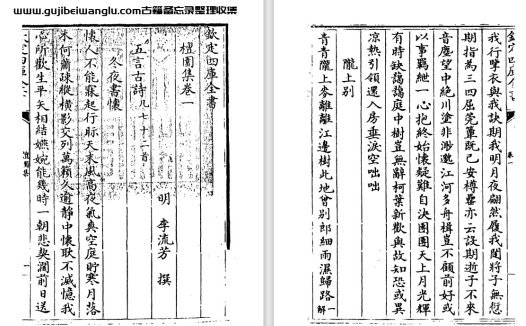 www.gujibeiwanglu.com古籍备忘录整理收集
欽定四庫全書
檀園集卷一
明 李流芳 撰
五言古詩 凡七十二首
冬夜書懷
懷人不能寐起行眎天末風高夜氣爽空庭貯寒月落
木何蕭疎縱橫影交列萬籟久逾静中懷耿不滅憶我
心所歡生平矢相結嬿婉能幾時一朝悲契濶前日送
檀園集
我行衣與我訣期我明月夜翩然履我闥將子無愆
期指為三五屈筦簟既已安樽罍亦云設期逝子不來
音塵望中絶川塗非渺邈江河多舟楫豈不顧前好或
以事羈紲一心抱終始懷疑難自決團團天上月光輝
有時缺藹藹庭中樹豈無辭柯葉新歡與故知恐或異
凉熱引領還入房垂淚空咄咄
隴上別
青青隴上麥離離江邊樹此地曾別郎細雨濕歸路 一解